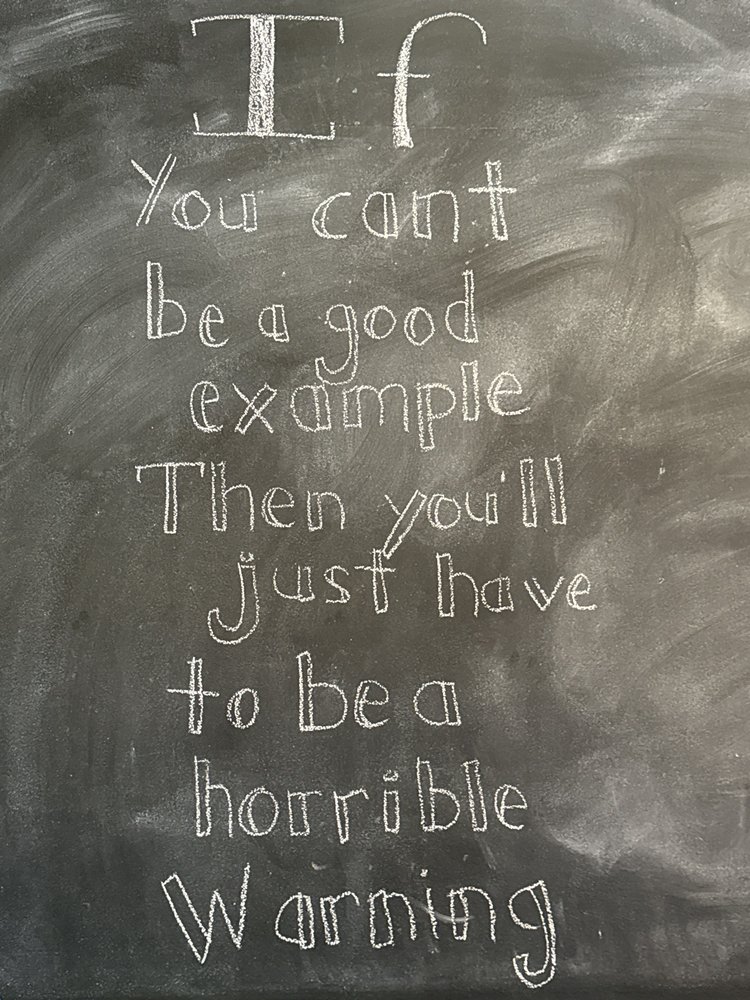 If
You cant
be a good
example
Then you'll
just have
to be a
horrible
Warning